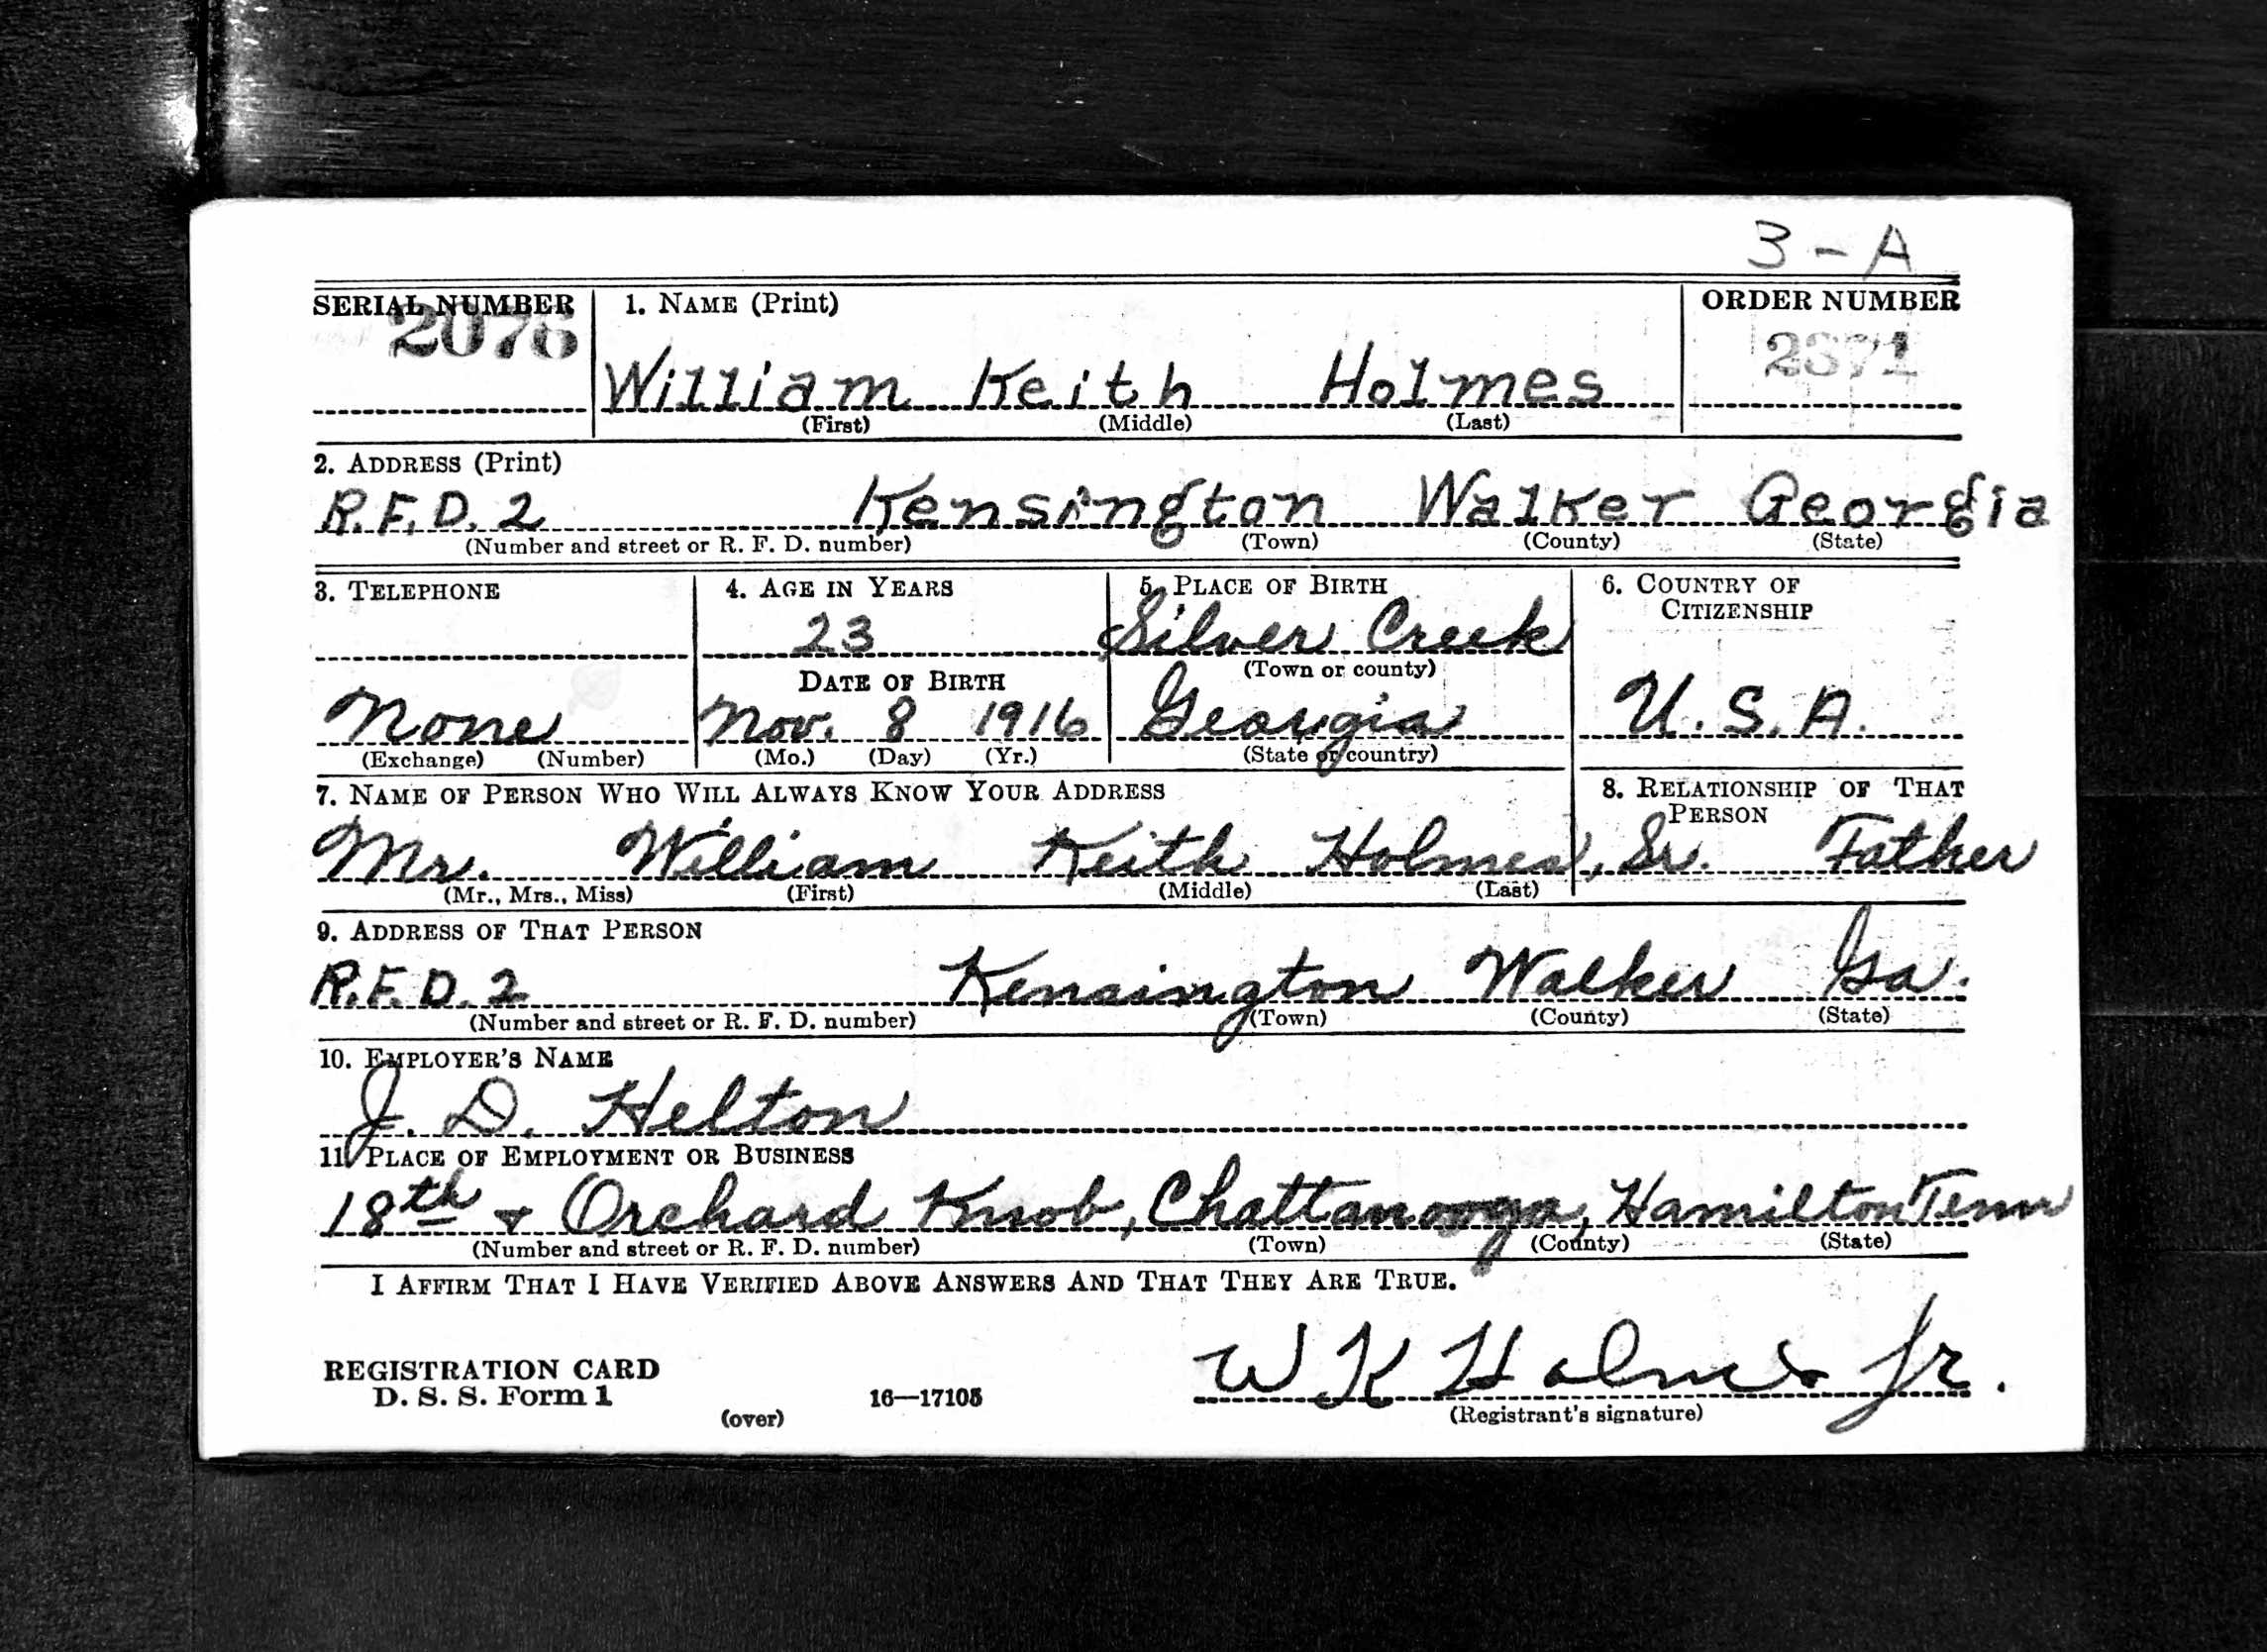 3-A
SERIAL NUMBER 1. NAME (Print) ORDER NUMBER
2076 William Keith Holmes 2371
(First) (Middle) (Last)
2. ADDRESS (Print)
R.F.D. 2 Kensington Walker Georgia
(Number and street or R. F. D. number) (Town) (County) (State)
3. TELEPHONE 4. AGE IN YEARS 5. PLACE OF BIRTH 6. COUNTRY OF
CITIZENSHIP
23 Silver Creek
DATE OF BIRTH (Town or county)
None Nov. 8 1916 Georgia U.S.A.
(Exchange) (Number) (Mo.) (Day) (Yr.) (State or country)
7. NAME OF PERSON WHO WILL ALWAYS KNOW YOUR ADDRESS 8. RELATIONSHIP OF THAT
PERSON
Mr. William Keith Holmes, Sr. Father
(Mr., Mrs., Miss) (First) (Middle) (Last)
9. ADDRESS OF THAT PERSON
R.F.D. 2 Kensington Walker Ga.
(Number and street or R. F. D. number) (Town) (County) (State)
10. EMPLOYER'S NAME
J. D. Helton
11. PLACE OF EMPLOYMENT OR BUSINESS
18th & Orchard Knob, Chattanooga, Hamilton Tenn
(Number and street or R. F. D. number) (Town) (County) (State)
I AFFIRM THAT I HAVE VERIFIED ABOVE ANSWERS AND THAT THEY ARE TRUE.
W K Holmes Jr.
REGISTRATION CARD
D. S. S. Form 1 16—17105 (Registrant's signature)
(over)